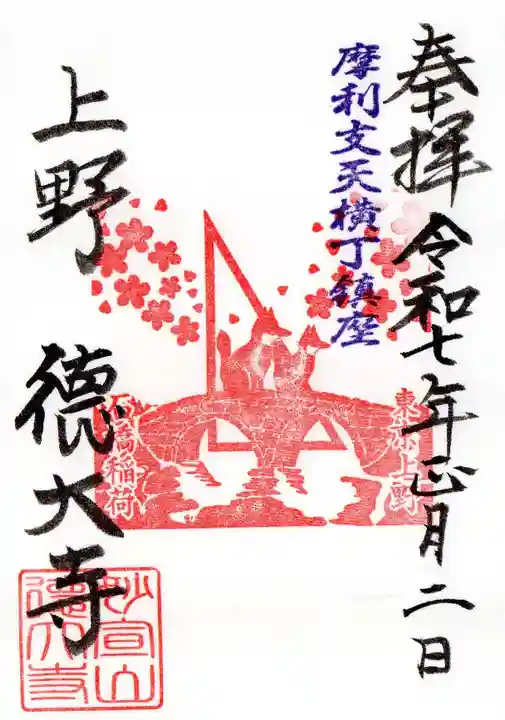 奉拝 令和七年正月二日
摩利支天横丁鎮座
上野 徳大寺
上野
稲荷
妙宣山
徳大寺